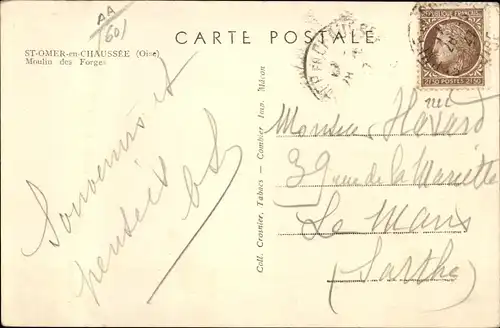 AA
601
ST-OMER-en-CHAUSSÉE (Oise)
Moulin des Forges
CARTE POSTALE
REPUBLIQUE FRANÇAISE
2F50 POSTES 2F50
Souvenirs et
pensées
Coll. Crosnier, Tabacs — Combier Imp. Mâcon
Monsieur Havard
39 rue de la Mariette
Le Mans
(Sarthe)